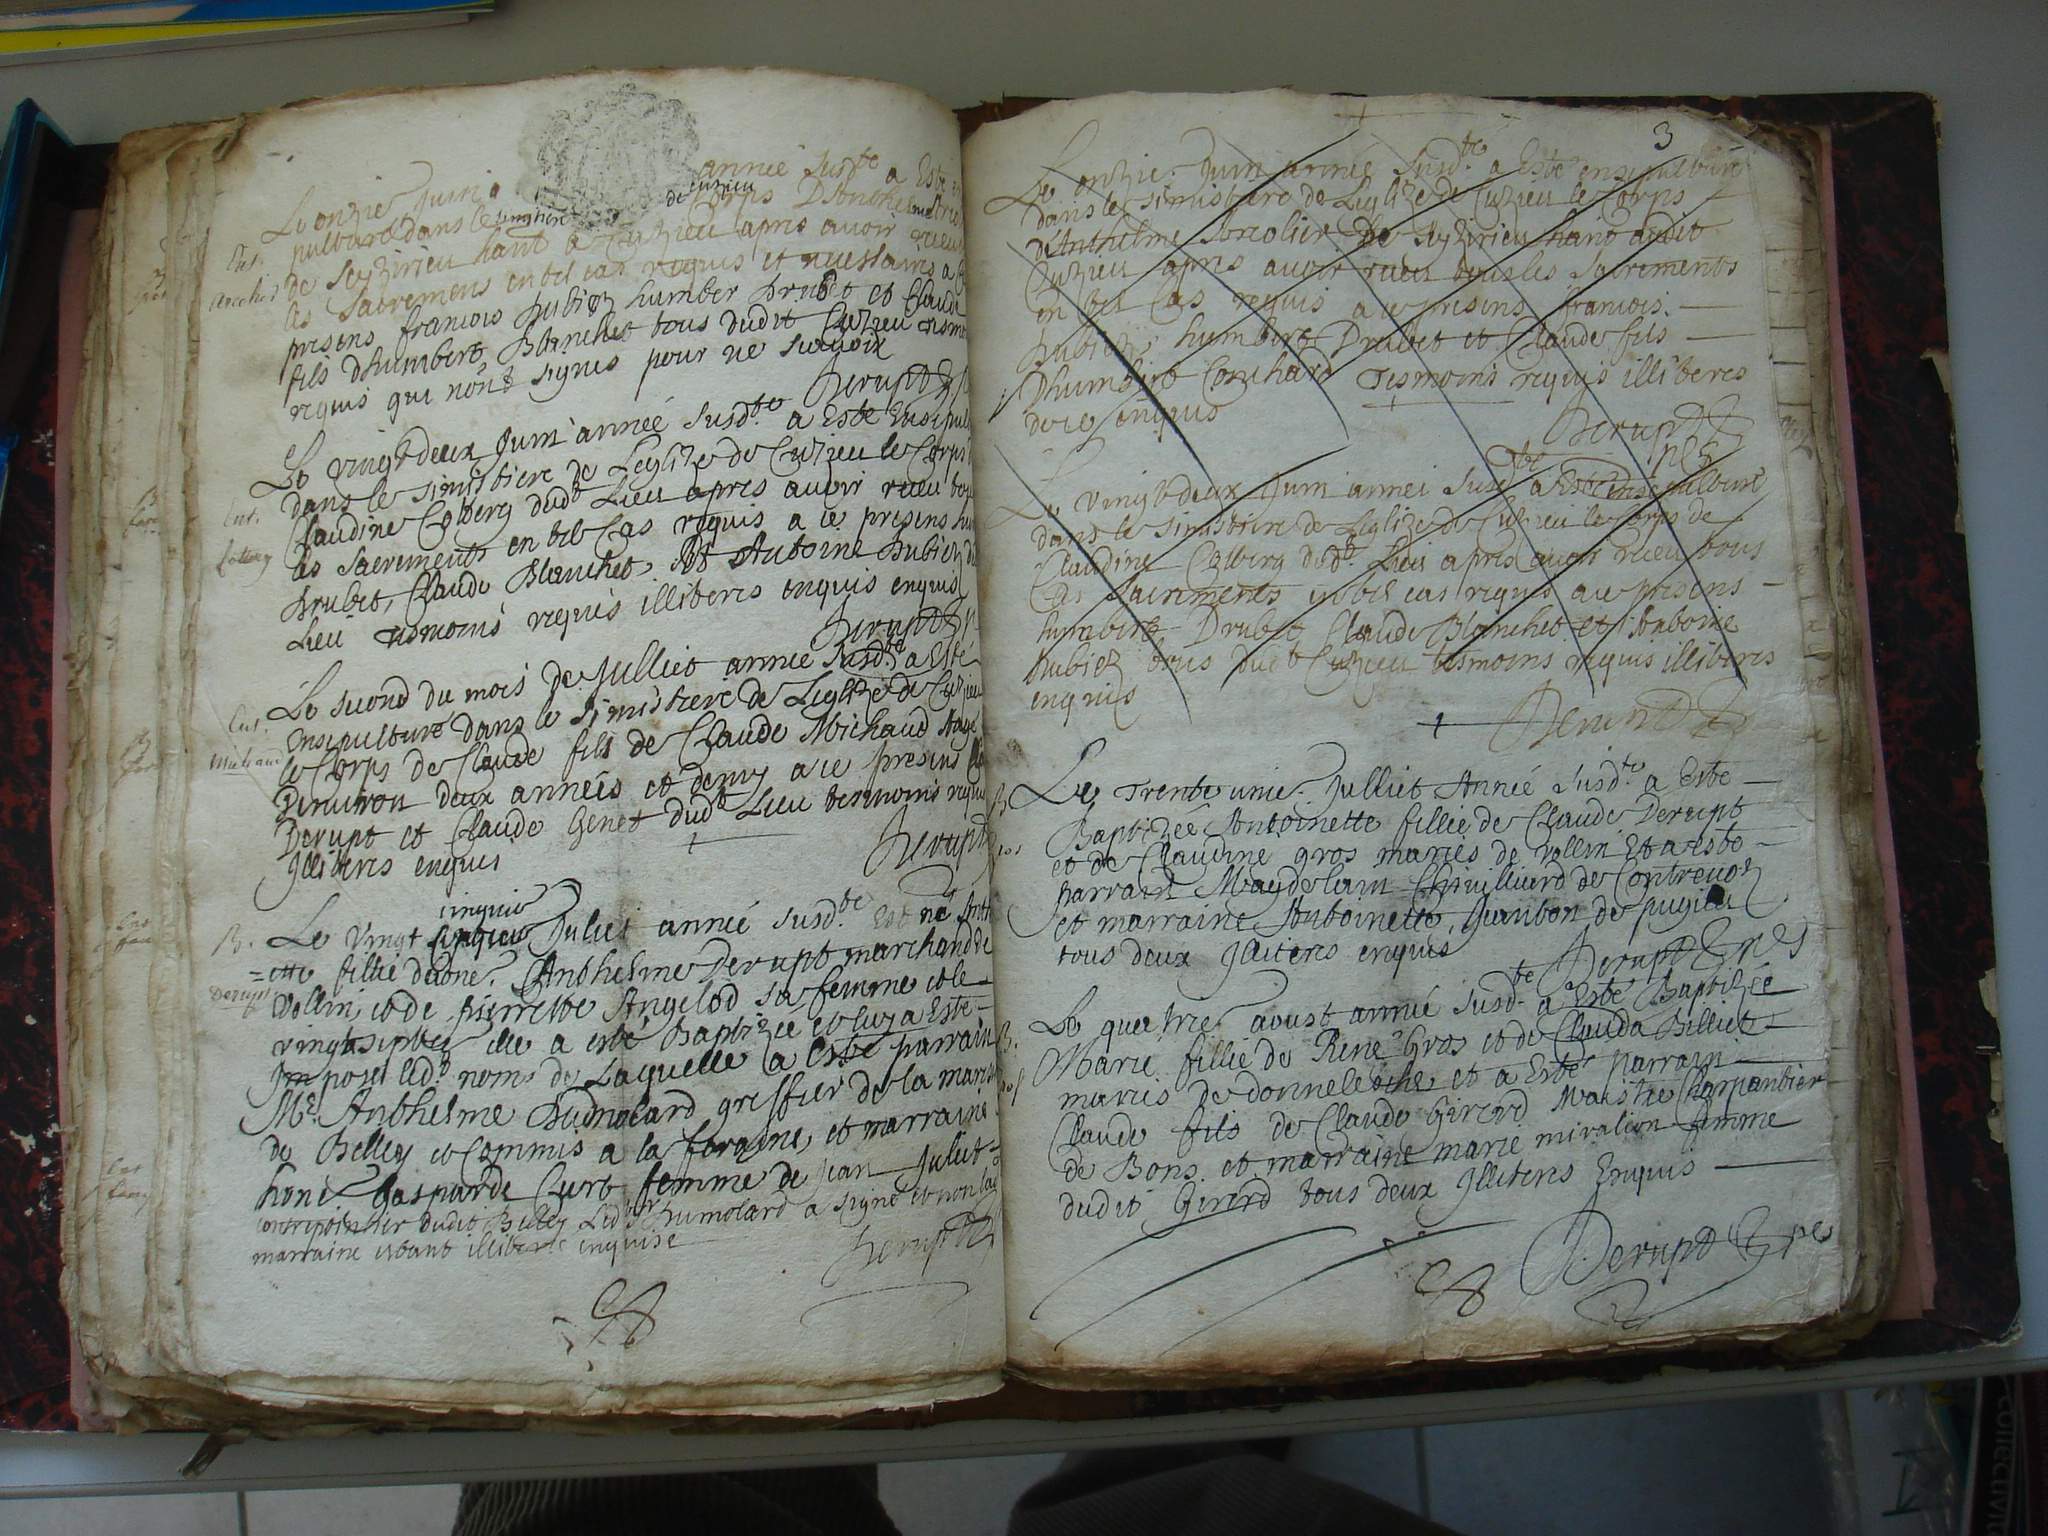 Le onzie Juin année susd.te a Esté en
pulturé dans le simistiere de cuzieu le corps D'Anthelme
de Seyzirieu hant a Cuzieu apres avoir receu
les Sacremens en tel cas requis et necessaires a ce
presens francois hubiez humber Drubet et Claude
fils Dhumbert Blanchet tous dudit Cuzieu tesmo
requis qui nont signés pour ne scavoir
Derupt
Ent.
Le vingt deux Juin année susd.te a Esté Ensepul
dans le simistiere de Leglize de Cuzieu le Corps
Claudine Colberg dud.t Lieu apres avoir receu tou
les Sacrements en tel Cas requis a ce presens hu
Drubet, Claude Blanchet, Et Antoine hubiez du
Lieu tesmoins requis illiteres enquis enquis
Derupt
Ent.
Le second du mois de Julliet année susd.te a Esté
Ensepulturé dans le simistiere de Leglize de Cuzieu
le Corps de Claude fils de Claude Michaud Aagé
Denviron deux années et demy a ce presens
Derupt et Claude Genet dud.t Lieu tesmoins requis
Jlliteres enquis
Derupt
Ent.
Michaud
cinquie
B. Le vingt cinquie Juliet année susd.te Est né Anth
=ette fillie de Anthelme Derupt marchand de
Derupt
Vollin et de pierrette Angelod sa femme et le
vingt septe elle a esté Baptizée et luy a Esté
Jmposé led.t nom de Laquelle a Esté parrain
M.e Anthelme Dumolard greffier de la mares
de Belley et Commis a la foraine, et marraine
hone. Gasparde Curt femme de jean Juliet
contrepointier dudit Belley Led.t Dumolard a signé et non la
marraine estant illiterée enquise
Derupt
3
Le onzie. Juin année susd.te a Esté ensepulturé
dans le simistiere de Leglize de Cuzieu le Corps
D'Anthelme Sorcolier de Seyzirieu hant audit
Cuzieu apres avoir receu tous les Sacrements
en tel Cas requis a ce presens francois
hubiez, humbert Drubet et Claude fils
Dhumbert Tesmoins requis illiteres
de ce enquis
Derupt
Le vingt deux Juin année susd.te a Esté Ensepulturé
dans le simistiere de Leglize de Cuzieu le Corps de
Claudine Colberg dud.t Lieu apres avoir receu tous
Les Sacrements en tel cas requis a ce presens
humbert Drubet Claude Blanchet et Antoine
hubiez tous dud.t Cuzieu tesmoins requis illiteres
enquis
Derupt
B. Le Trente unie. Julliet Année susd.te a Esté
Baptizée Antoinette fillie de Claude Derupt
et de Claudine gros mariés de vollin Et a esté
parrain Magdelain Chivilliard de Contrevoz
et marraine Antoinette Jeanton de pugieu
tous deux Jlliteres enquis
Derupt
B. Le quatrie. aoust année susd.te a Esté Baptizée
Marie fillie de René Gros et de Clauda Billiet
mariés de donneleche, et a Esté parrain
Claude fils de Claude Girerd Maistre Charpantier
de Bons, et marraine marie miralion femme
dudit Girerd tous deux Jlliteres Enquis
Derupt